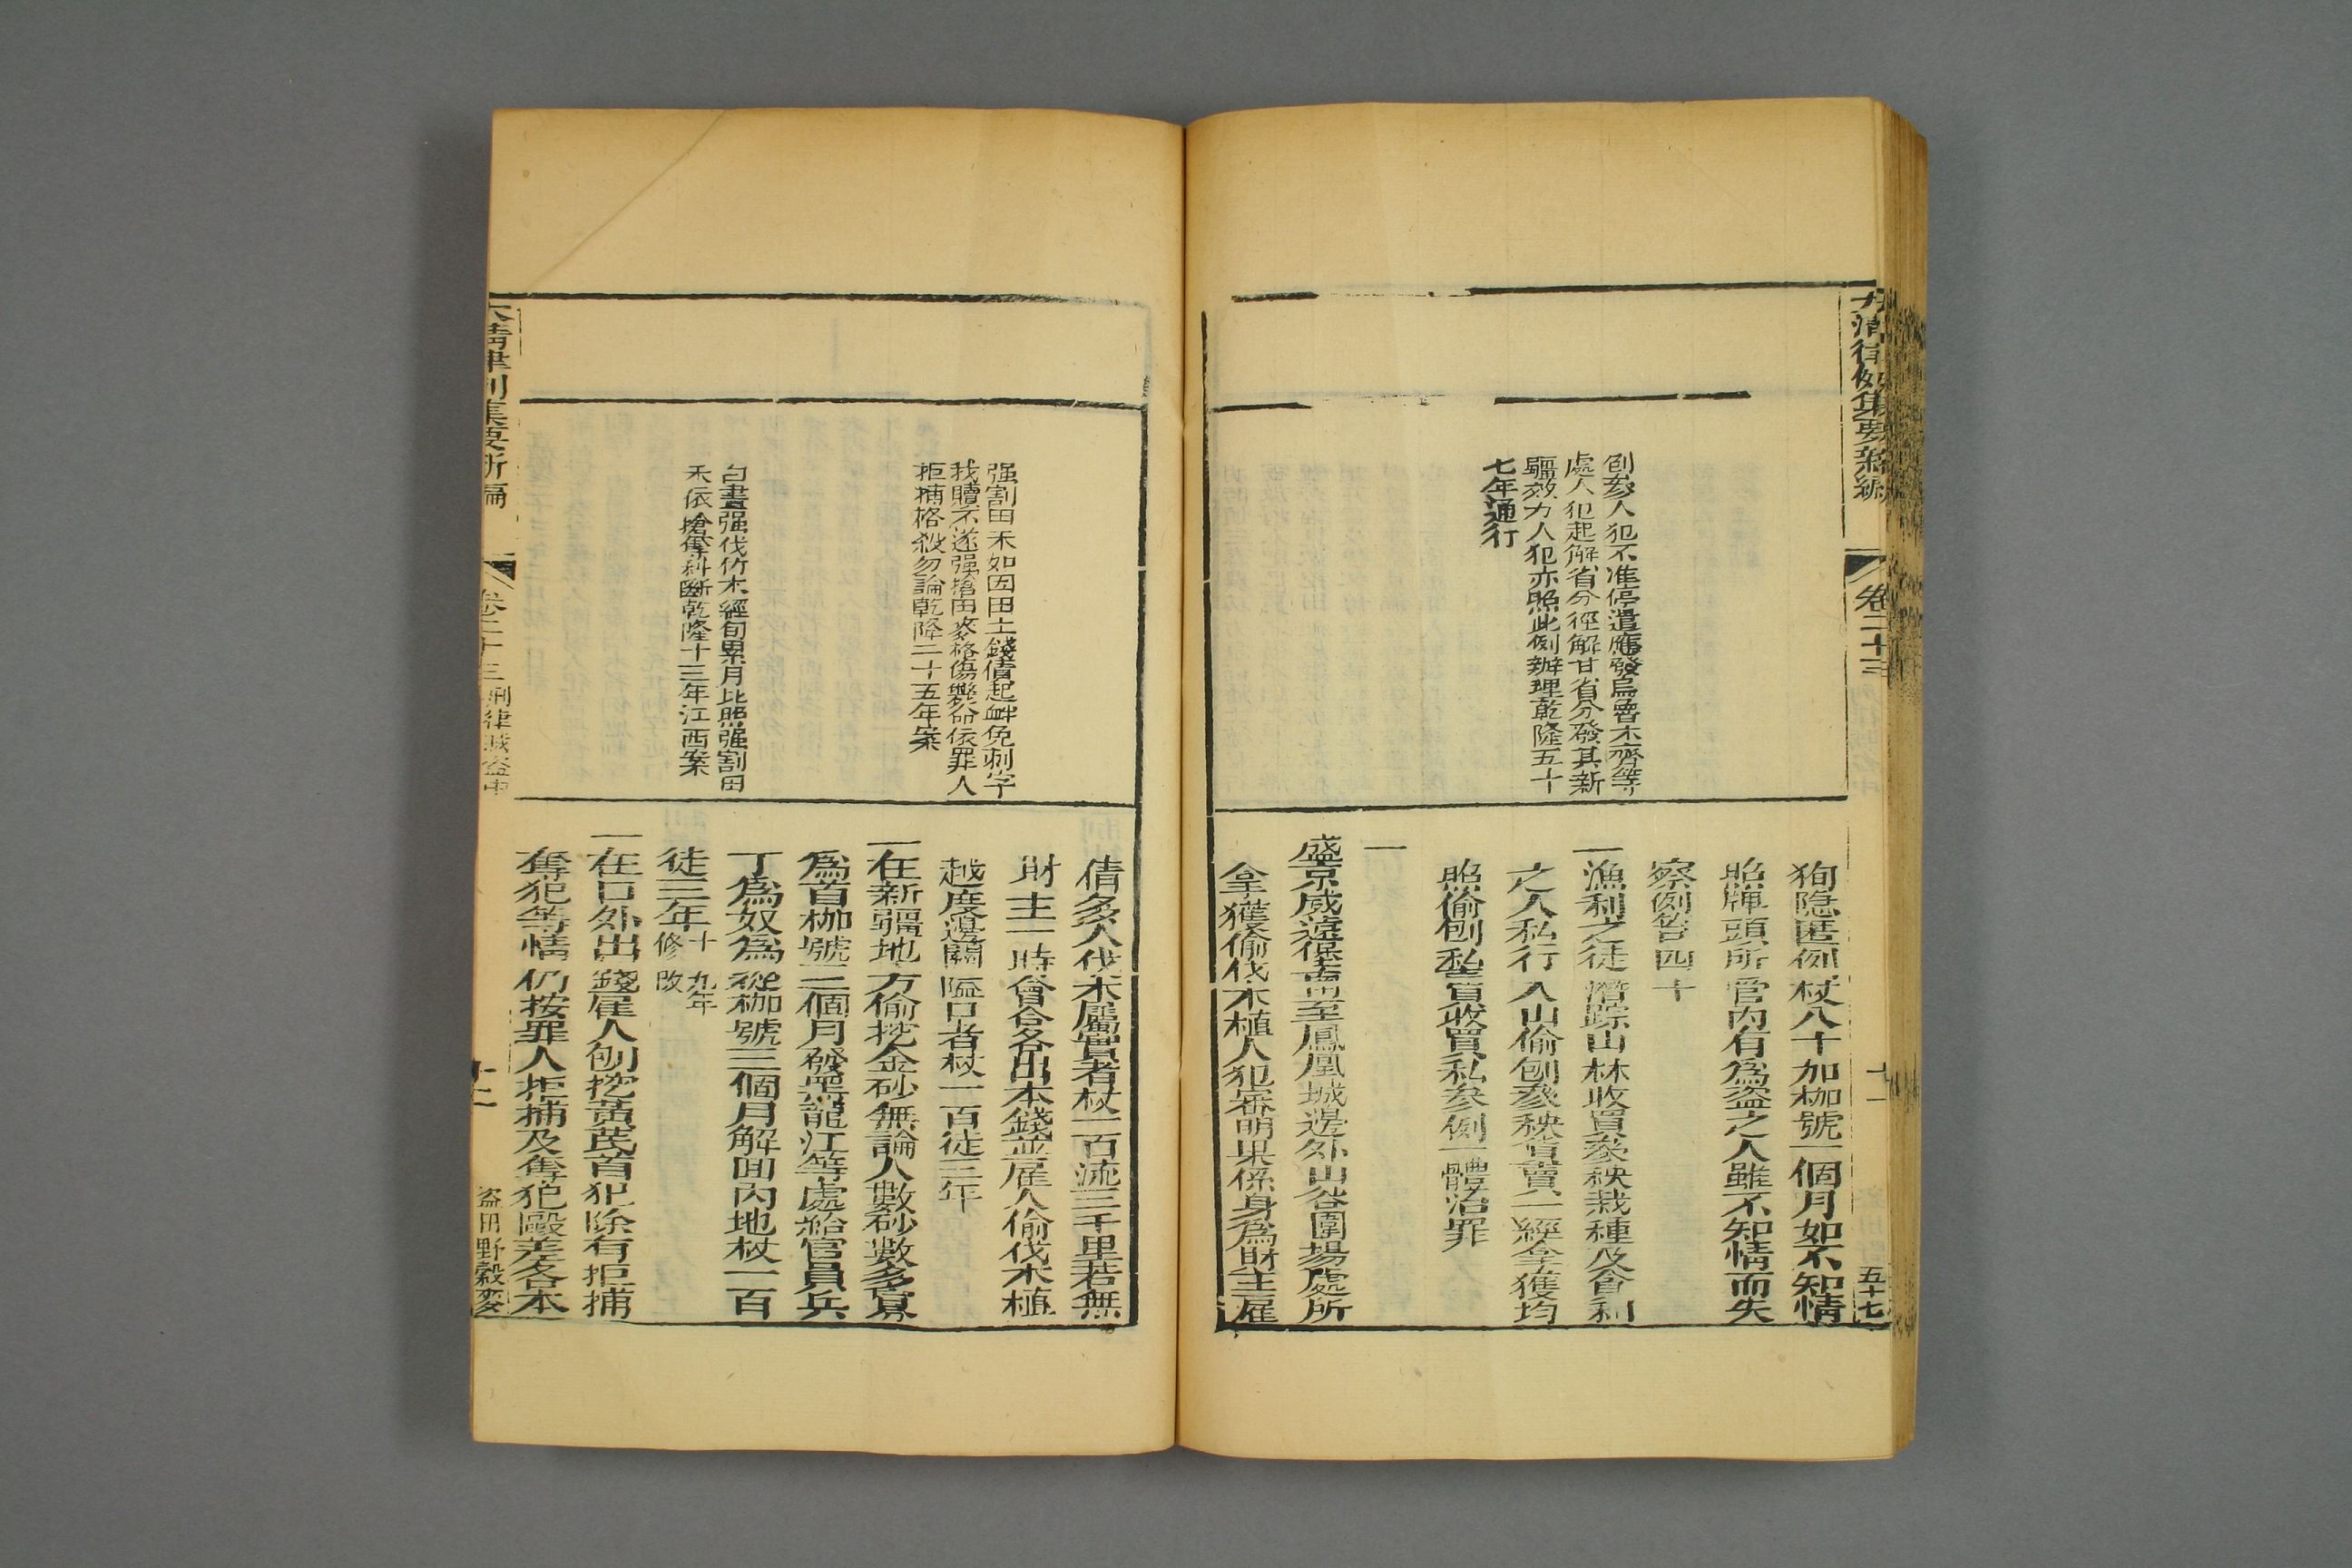 大淸律例集要新編
卷二十三
十一
五十七
刨參人犯不准停遣應發烏魯木齊等
處人犯起解省分徑解甘省分發其新
疆效力人犯亦照此例辦理乾隆五十
七年通行
狥隱匿例杖八十加枷號一個月如不知情
照牌頭所管內有爲盜之人雖不知情而失
察例笞四十
一漁利之徒潛踪山林收買參秧栽種及貪利
之人私行入山偷刨參秧貨賣一經拿獲均
照偷刨私賣收買私參例一體治罪
一
盛京咸
至鳳凰城邊外山谷圍場處所
拿獲偷伐木植人犯審明果係身爲財主雇
强割田禾如因田土錢債起衅免刺字
找贖不遂强搶田麥格傷斃命依罪人
拒捕格殺勿論乾隆二十五年案
白晝强伐竹木經旬累月比照强割田
禾依搶奪科斷乾隆十三年江西案
倩多人伐木屬實者杖一百流三千里若無
財主一時會合各出本錢並雇人偷伐木植
越度邊關隘口者杖一百徒三年
一在新疆地方偷挖金砂無論人數砂數多寡
爲首枷號三個月發黑龍江等處給官員兵
丁爲奴爲從枷號三個月解囬內地杖一百
徒三年十九年修改
一在口外出錢雇人刨挖黃芪首犯除有拒捕
奪犯等情仍按罪人拒捕及奪犯毆差各本
大淸律例集要新編
卷二十三
刑律賊盜中
十二
盜田野穀麥